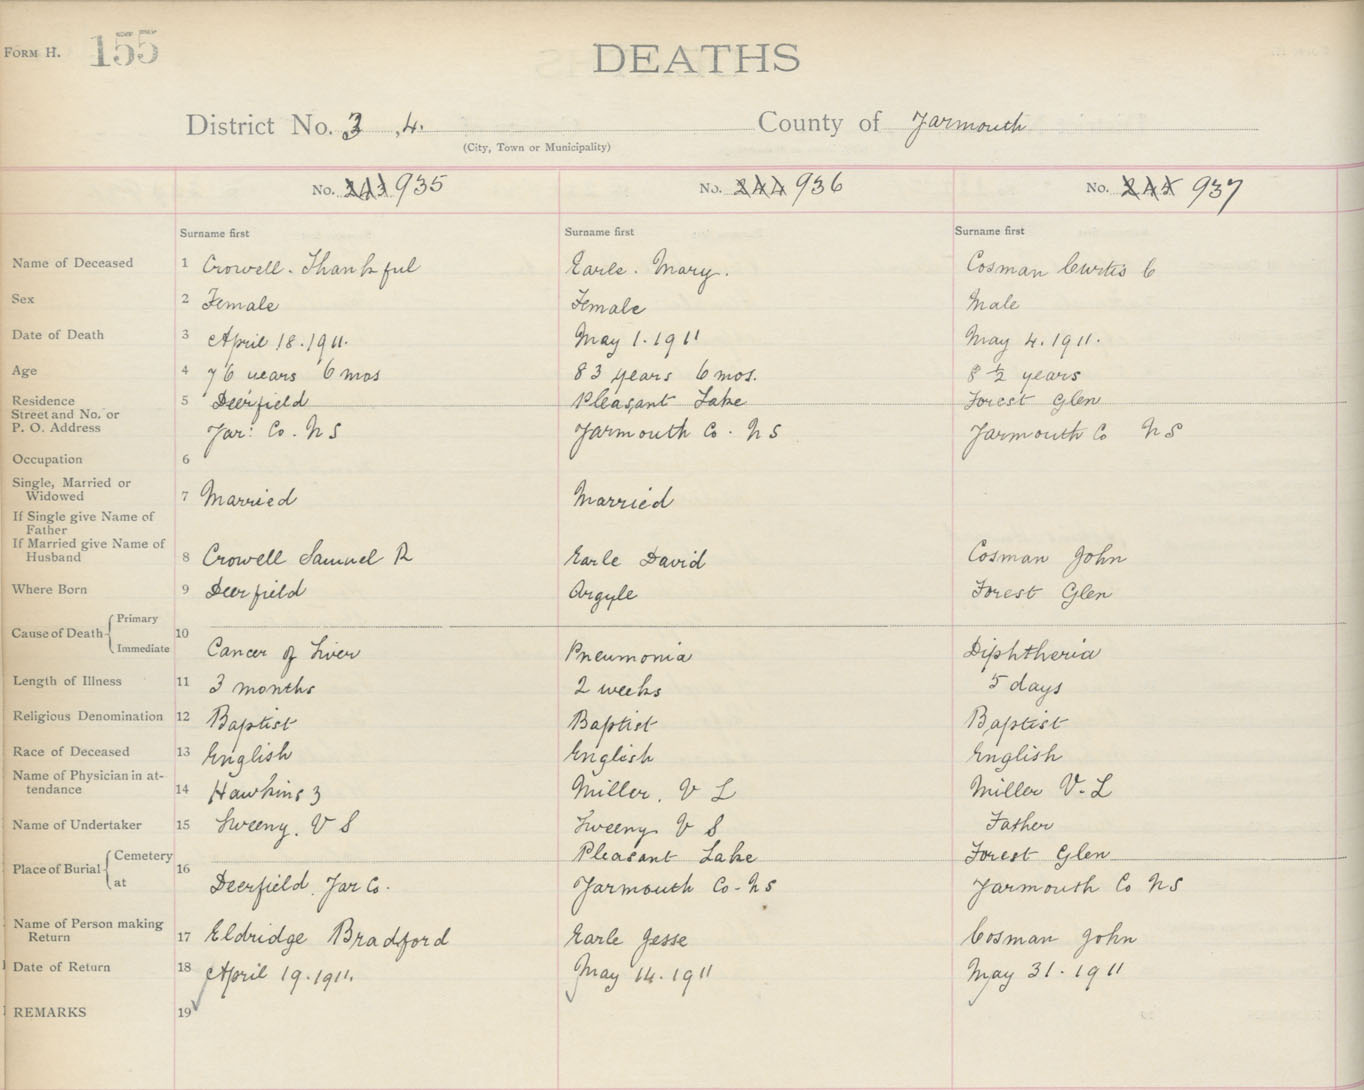 FORM H. 155
DEATHS
District No. 3, 4. County of Yarmouth
(City, Town or Municipality)
No. 243 935 No. 244 936 No. 245 937
Surname first Surname first Surname first
Name of Deceased 1 Crowell. Thankful Earle. Mary. Cosman Curtis C
Sex 2 Female Female Male
Date of Death 3 April 18.1911. May 1.1911 May 4.1911.
Age 4 76 years 6 mos 83 years 6 mos. 8 ½ years
Residence 5 Deerfield Pleasant Lake Forest Glen
Street and No. or
P. O. Address Yar: Co. N S Yarmouth Co. N S Yarmouth Co N S
Occupation 6
Single, Married or
Widowed 7 Married Married
If Single give Name of
Father
If Married give Name of
Husband 8 Crowell Samuel R Earle David Cosman John
Where Born 9 Deerfield Argyle Forest Glen
Cause of Death Primary 10
Immediate Cancer of Liver Pneumonia Diphtheria
Length of Illness 11 3 months 2 weeks 5 days
Religious Denomination 12 Baptist Baptist Baptist
Race of Deceased 13 English English English
Name of Physician in at-
tendance 14 Hawkins Miller. V L Miller V. L
Name of Undertaker 15 Sweeny. V S Sweeny V S Father
Place of Burial Cemetery 16 Pleasant Lake Forest Glen
at Deerfield. Yar Co. Yarmouth Co - N S Yarmouth Co N S
Name of Person making
Return 17 Eldridge Bradford Earle Jesse Cosman John
Date of Return 18 April 19.1911. May 14.1911 May 31.1911
REMARKS 19